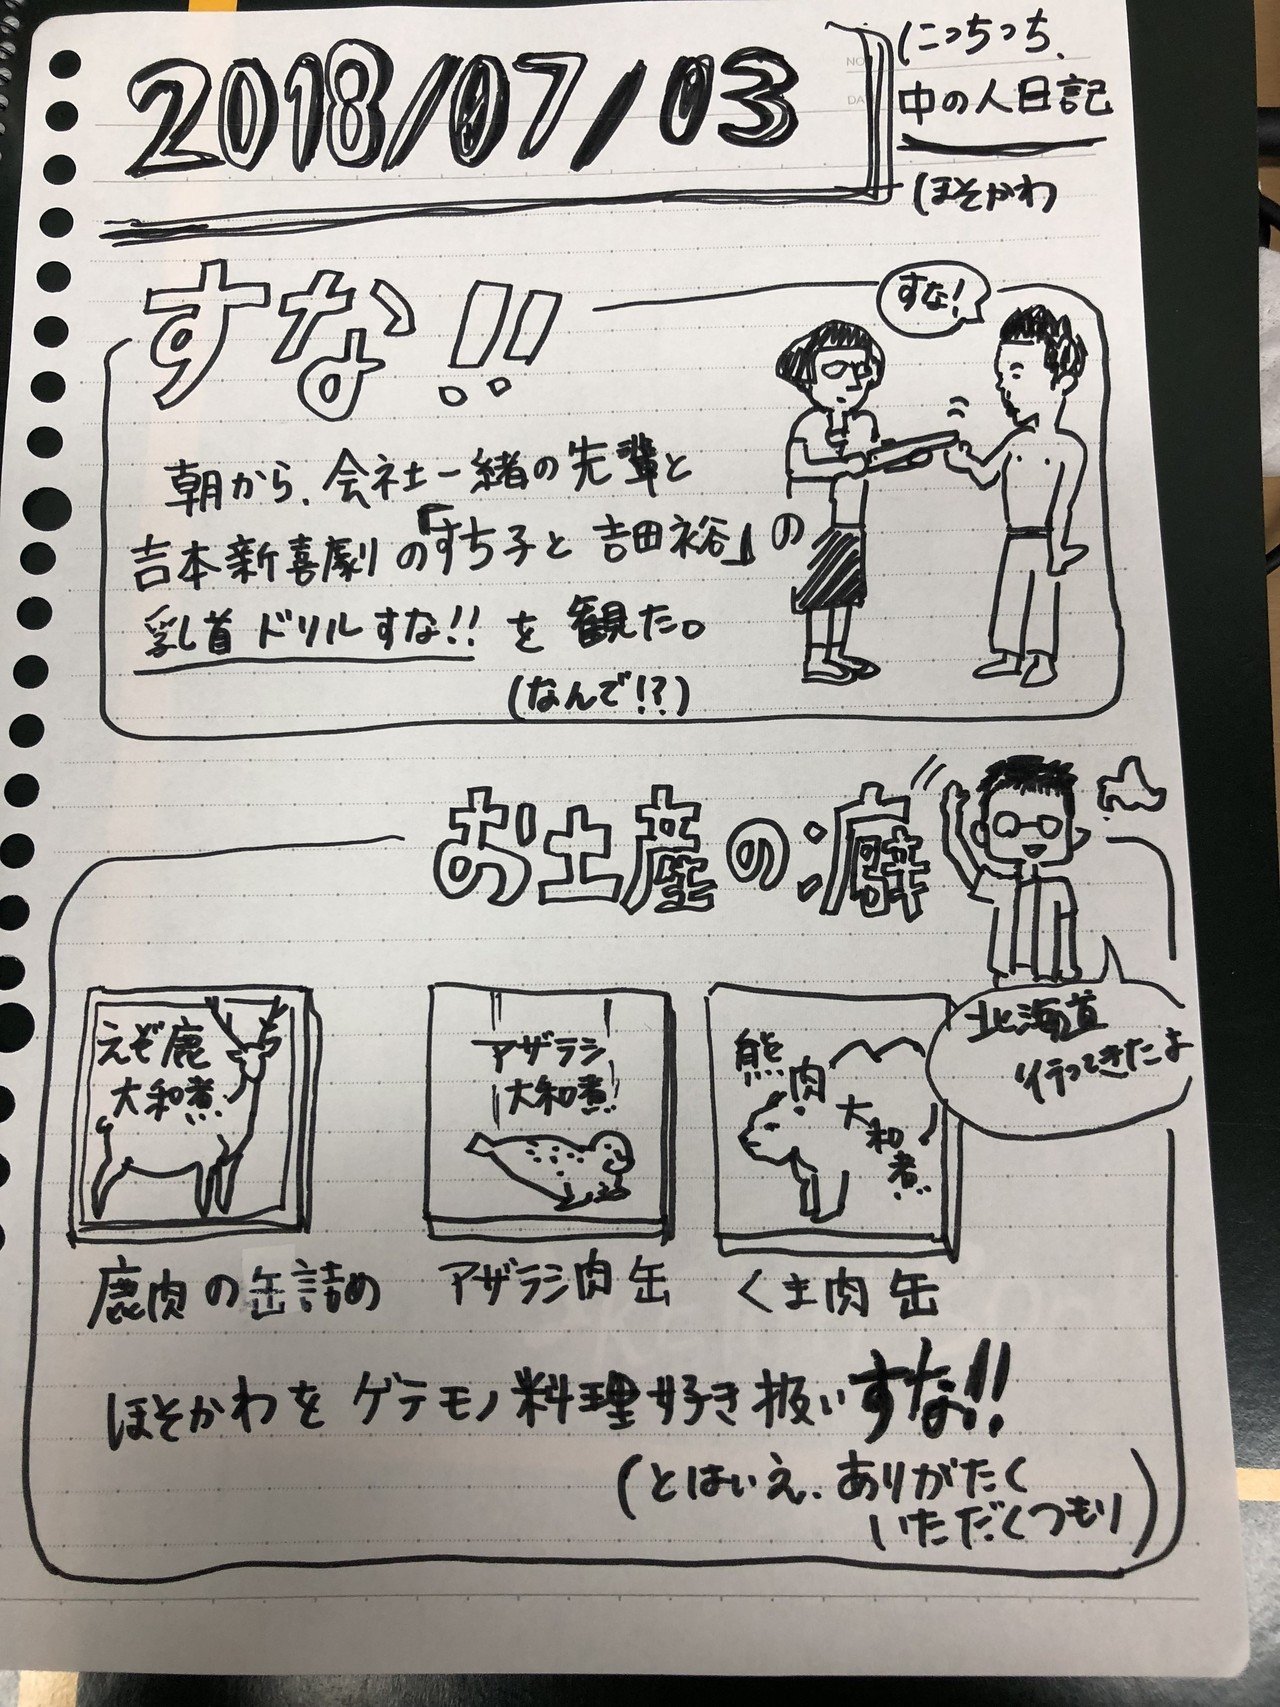 2018/07/03
にっちっち、
中の人日記
(ほそかわ
すな!!
すな!
朝から、会社一緒の先輩と
吉本新喜劇の「すち子と吉田裕」の
乳首ドリルすな!!を観た。
(なんで!?)
お土産の癖
北海道
行ってきたよ
えぞ鹿
大和煮
アザラシ
大和煮
熊肉
大和煮
鹿肉の缶詰め
アザラシ肉缶
くま肉缶
ほそかわをゲテモノ料理好き扱いすな!!
(とはいえ、ありがたく
いただくつもり)